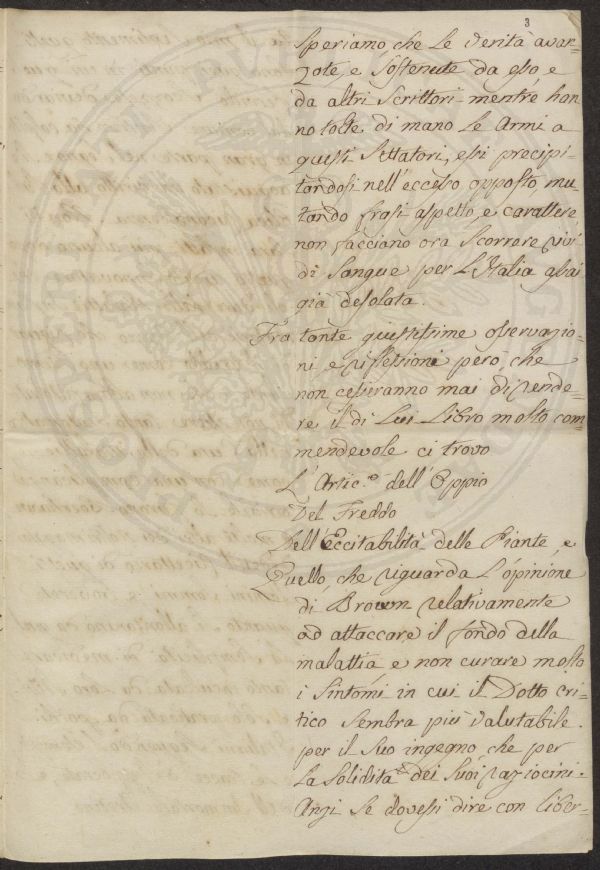 3
Speriamo, che le verità avan-
zate, e sostenute da esso, e
da altri Scrittori mentre han
no tolte di mano le Armi a
questi Settatori, essi precipi-
tandosi nell'eccesso opposto, mu-
tando frasi aspetto, e carattere,
non facciano ora scorrere rivi
di Sangue per l'Italia assai
già desolata.
Fra tante giustissime osservazio-
ni, e riflessioni però, che
non cesseranno mai di rende-
re il di Lui Libro molto com
mendevole ci trovo
L'Artic.º dell'Oppio
Del Freddo
Dell'Eccitabilità delle Piante, e
Quello, che riguarda l'opinione
di Brown relativamente
ad attaccare il fondo della
malattia e non curare molto
i Sintomi in cui il Dotto cri-
tico sembra più valutabile
per il suo ingegno che per
la Solidità dei suoi raziocini.
Anzi se dovessi dire con liber-